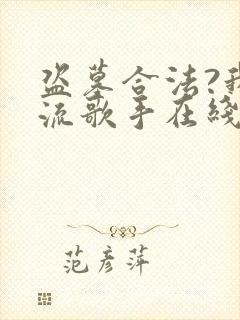 盗墓合法?我
流歌手在线
范彦萍